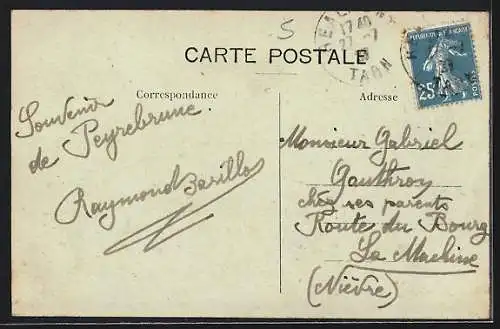 5
17 40
27 - 7
TARN
CARTE POSTALE
REPUBLIQUE FRANÇAISE
25c
POSTES
Correspondance
Adresse
Souvenir
de Peyrebrune.
Raymond
Monsieur Gabriel
Gauthron
chez ses parents
Route du Bourg
La Machine
(Nièvre)